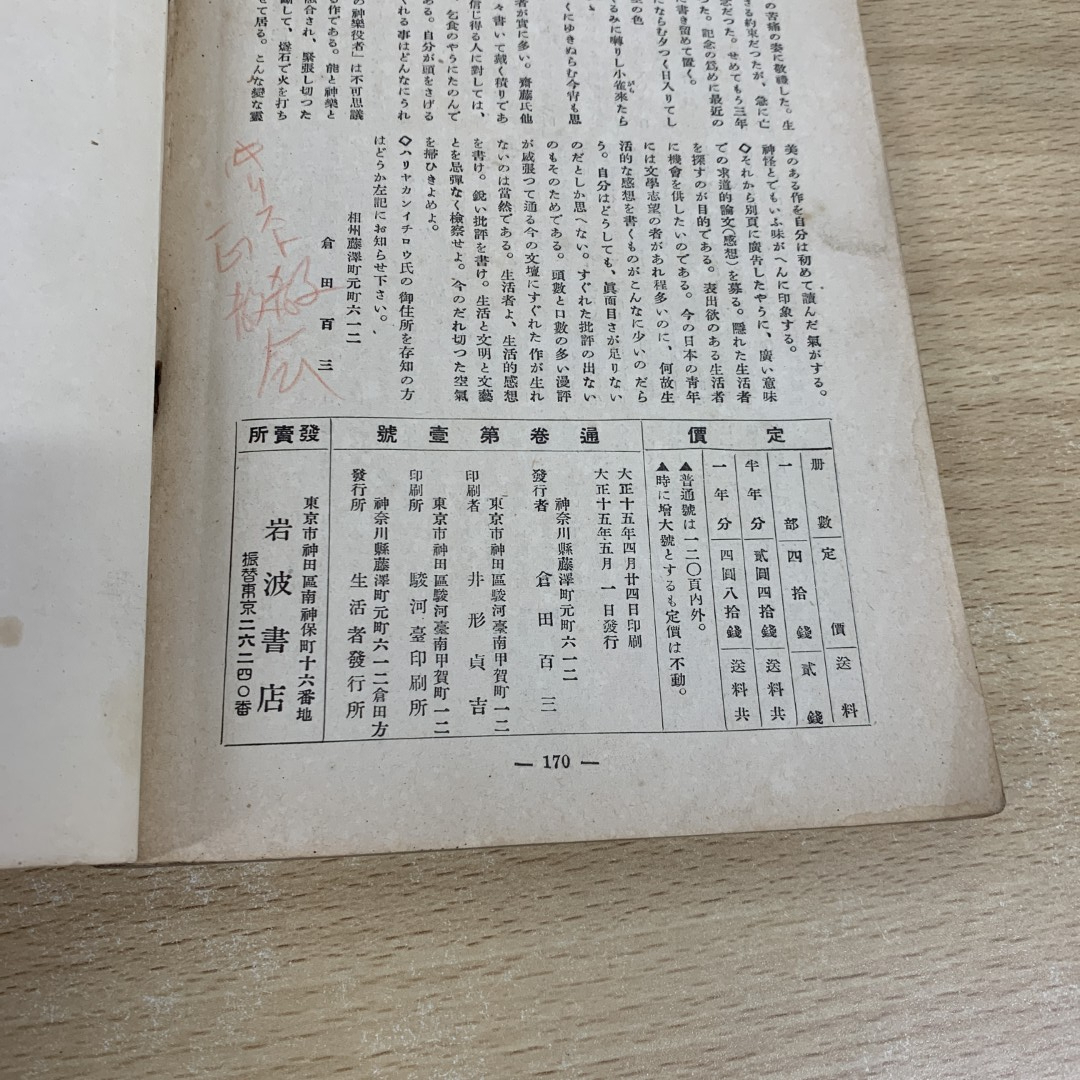 の苦痛の姿に敬禮した。生
きる約束だつたが、急に亡
念だつた。せめてもう三年
つた。記念の爲めに最近の
に書き留めて置く。
にならむ夕つく日入りてし
空の色
るみに囀りし小雀来たら
くにゆきぬらむ今宵も思
者が實に多い。齋藤氏他
々書いて戴く積りであ
信じ得る人に對しては、
乞食のやうにたのんで
ある。自分が頭をさげる
くれる事はどんなにうれ
の神樂役者」は不可思議
る作である。能と神樂と
融合され、緊張し切つた
勵して、燧石で火を打ち
せて居る。こんな變な靈
美のある作を自分は初めて讀んだ氣がする。
神怪とでもいふ味がへんに印象する。
◇それから別頁に廣告したやうに、廣い意味
での求道的論文(感想)を募る。隱れた生活者
を探すのが目的である。表出欲のある生活者
に機會を供したいのである。今の日本の青年
には文學志望の者があれ程多いのに、何故生
活的な感想を書くものがこんなに少いのだら
う。自分はどうしても、眞面目さが足りない
のだとしか思へない。すぐれた批評の出ない
のもそのためである。頭數と口數の多い漫評
が威張つて通る今の文壇にすぐれた作が生れ
ないのは當然である。生活者よ、生活的感想
を書け。鋭い批評を書け。生活と文明と文藝
とを忌彈なく檢察せよ。今のだれ切つた空氣
を掃ひきよめよ。
◇ハリヤカンイチロウ氏の御住所を存知の方
はどうか左記にお知らせ下さい。
相州藤澤町元町六一二
倉田百三
キリスト教
定價
册數 定價 送料
一部 四拾錢 貳錢
半年分 貳圓四拾錢 送料共
一年分 四圓八拾錢 送料共
▲普通號は一二〇頁内外。
▲時に增大號とするも定價は不動。
通卷第壹號
大正十五年四月廿四日印刷
大正十五年五月一日發行
神奈川縣藤澤町元町六一二
發行者 倉田百三
東京市神田區駿河臺南甲賀町一二
印刷者 井形貞吉
東京市神田區駿河臺南甲賀町一二
印刷所 駿河臺印刷所
神奈川縣藤澤町元町六一二倉田方
發行所 生活者發行所
發賣所
東京市神田區南神保町十六番地
岩波書店
振替東京二六二四〇番
— 170 —